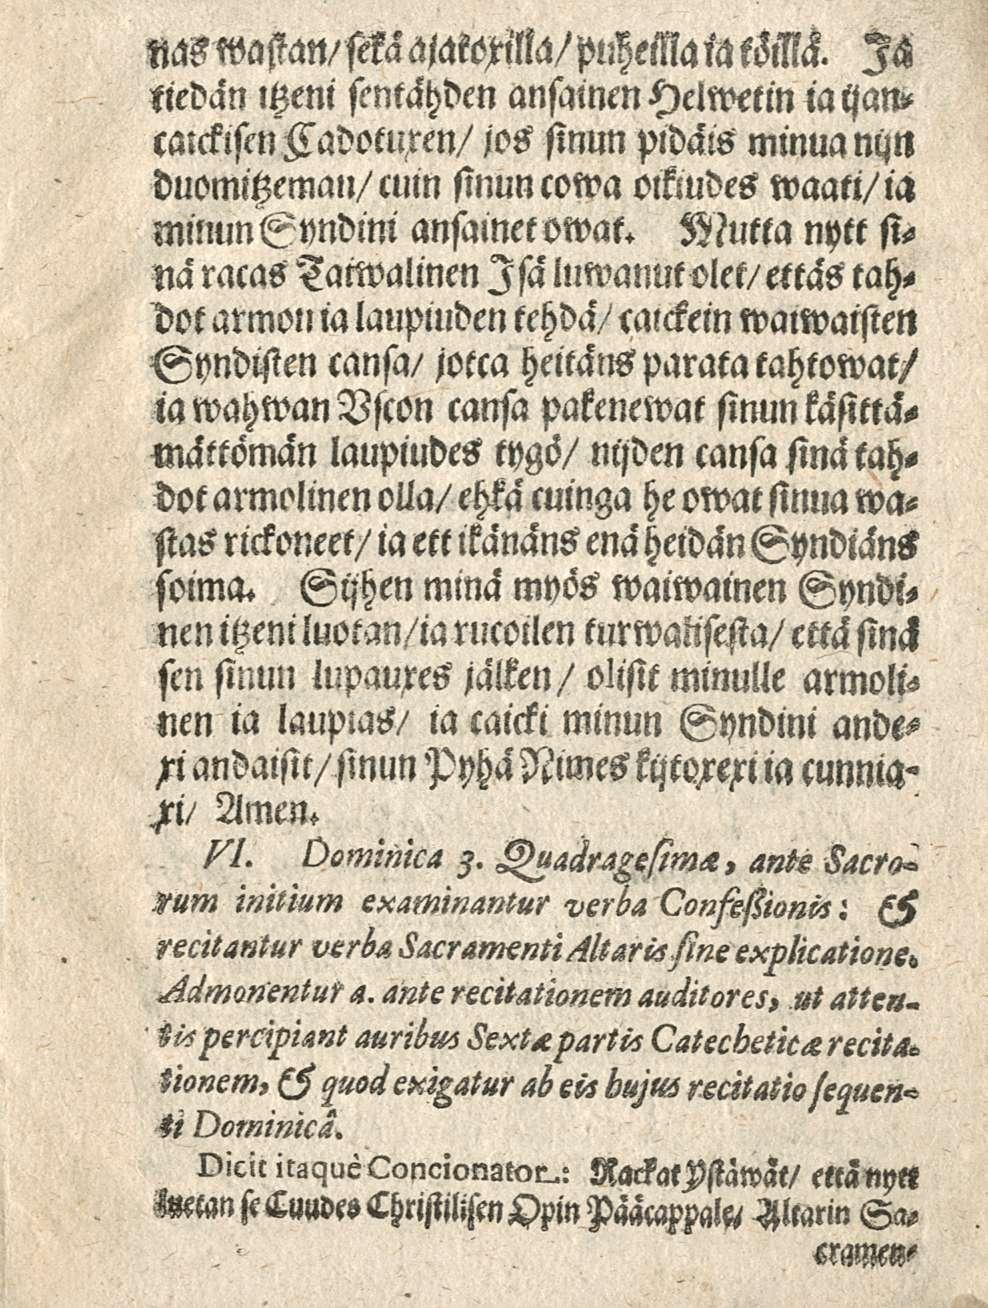 nas wastan/ sekä ajatoxilla/ puheilla ia töillä. Ja
tiedän itzeni sentähden ansainen Helwetin ia ijan⸗
caickisen Cadotuxen/ jos sinun pidäis minua nijn
duomitzeman/ cuin sinun cowa oikiudes waati/ ia
minun Syndini ansainet owat. Mutta nytt si⸗
nä racas Taiwalinen Isä luwanut olet/ ettäs tah⸗
dot armon ia laupiuden tehdä/ caickein waiwaisten
Syndisten cansa/ jotca heitäns parata tahtowat/
ia wahwan Vscon cansa pakenewat sinun käsittä⸗
mättömän laupiudes tygö/ nijden cansa sinä tah⸗
dot armolinen olla/ ehkä cuinga he owat sinua wa⸗
stas rickoneet/ ia ett ikänäns enä heidän Syndiäns
soima. Sijhen minä myös waiwainen Syndi⸗
nen itzeni luotan/ ia rucoilen turwalisesta/ että sinä
sen sinun lupauxes jälken/ olisit minulle armoli⸗
nen ia laupias/ ia caicki minun Syndini ande⸗
xi andaisit/ sinun Pyhä Nimes kijtoxexi ia cunnia⸗
xi/ Amen.
VI. Dominica 3. Quadragesimæ, ante Sacro⸗
rum initium examinantur verba Confeßionis: &
recitantur verba Sacramenti Altaris sine explicatione.
Admonentur a. ante recitationem auditores, ut atten⸗
tis percipiant auribus Sextæ partis Catecheticæ recita⸗
tionem, & quod exigatur ab eis hujus recitatio sequen⸗
ti Dominicâ.
Dicit itaquè Concionator: Rackat Ystäwät/ että nytt
luetan se Cuudes Christilisen Opin Pääcappale/ Altarin Sa⸗
cramen⸗